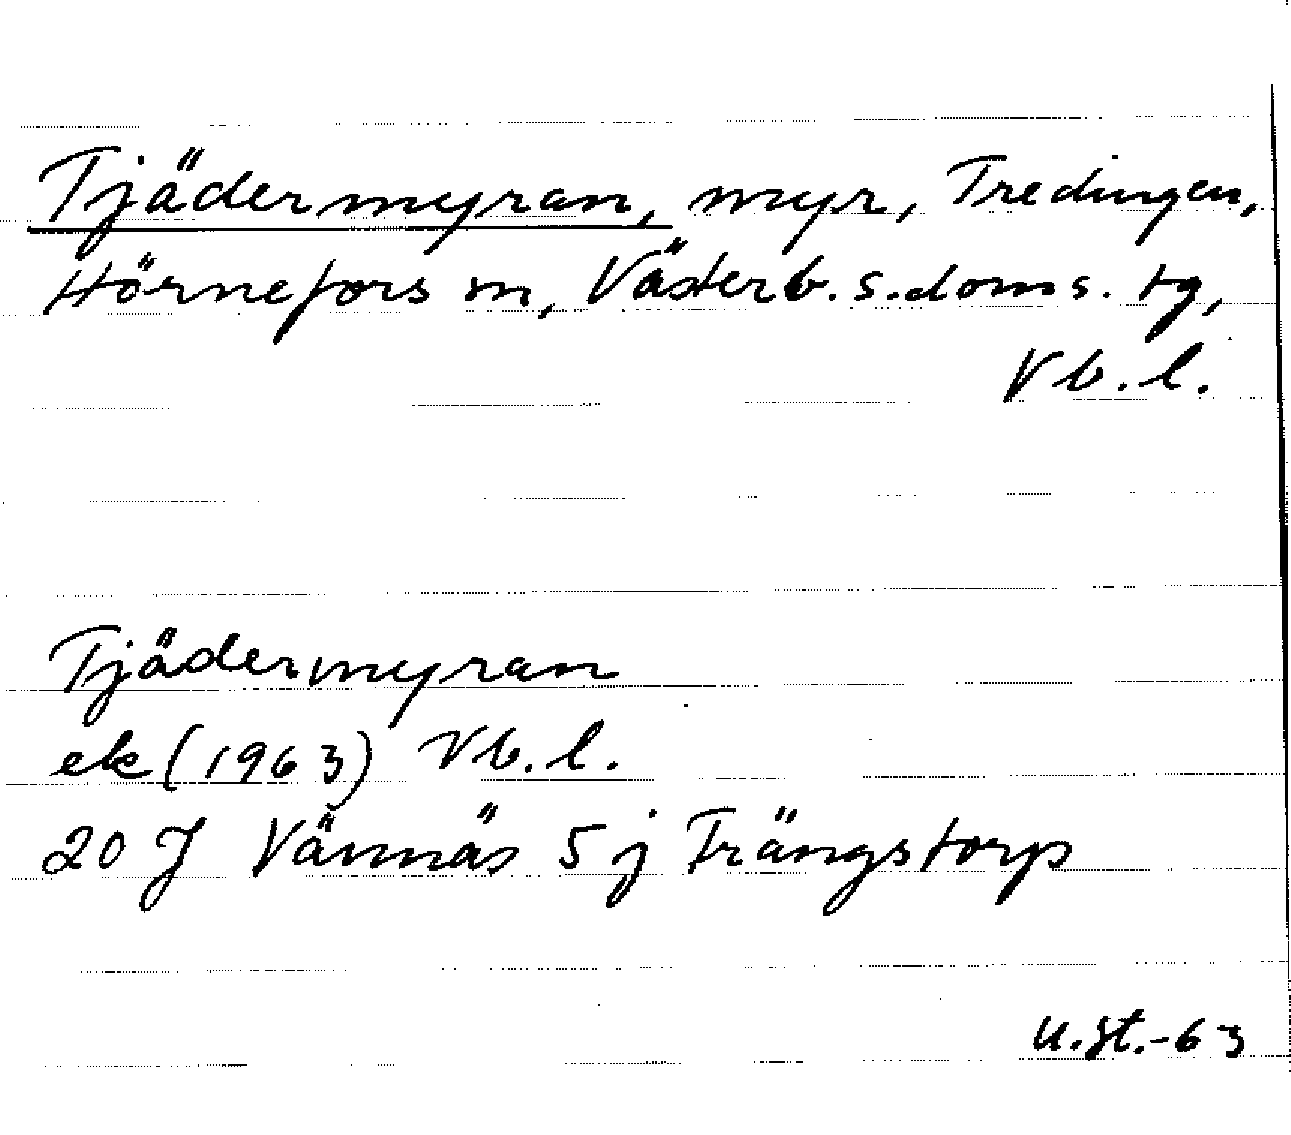 Tjädermyran, myr, Tredingen,
Hörnefors sn, Västerb. s. doms. tg,
Vb. l.
Tjädermyran
ek (1963) Vb. l.
20 J Vännäs 5 j Trängstorp
U. St. -63